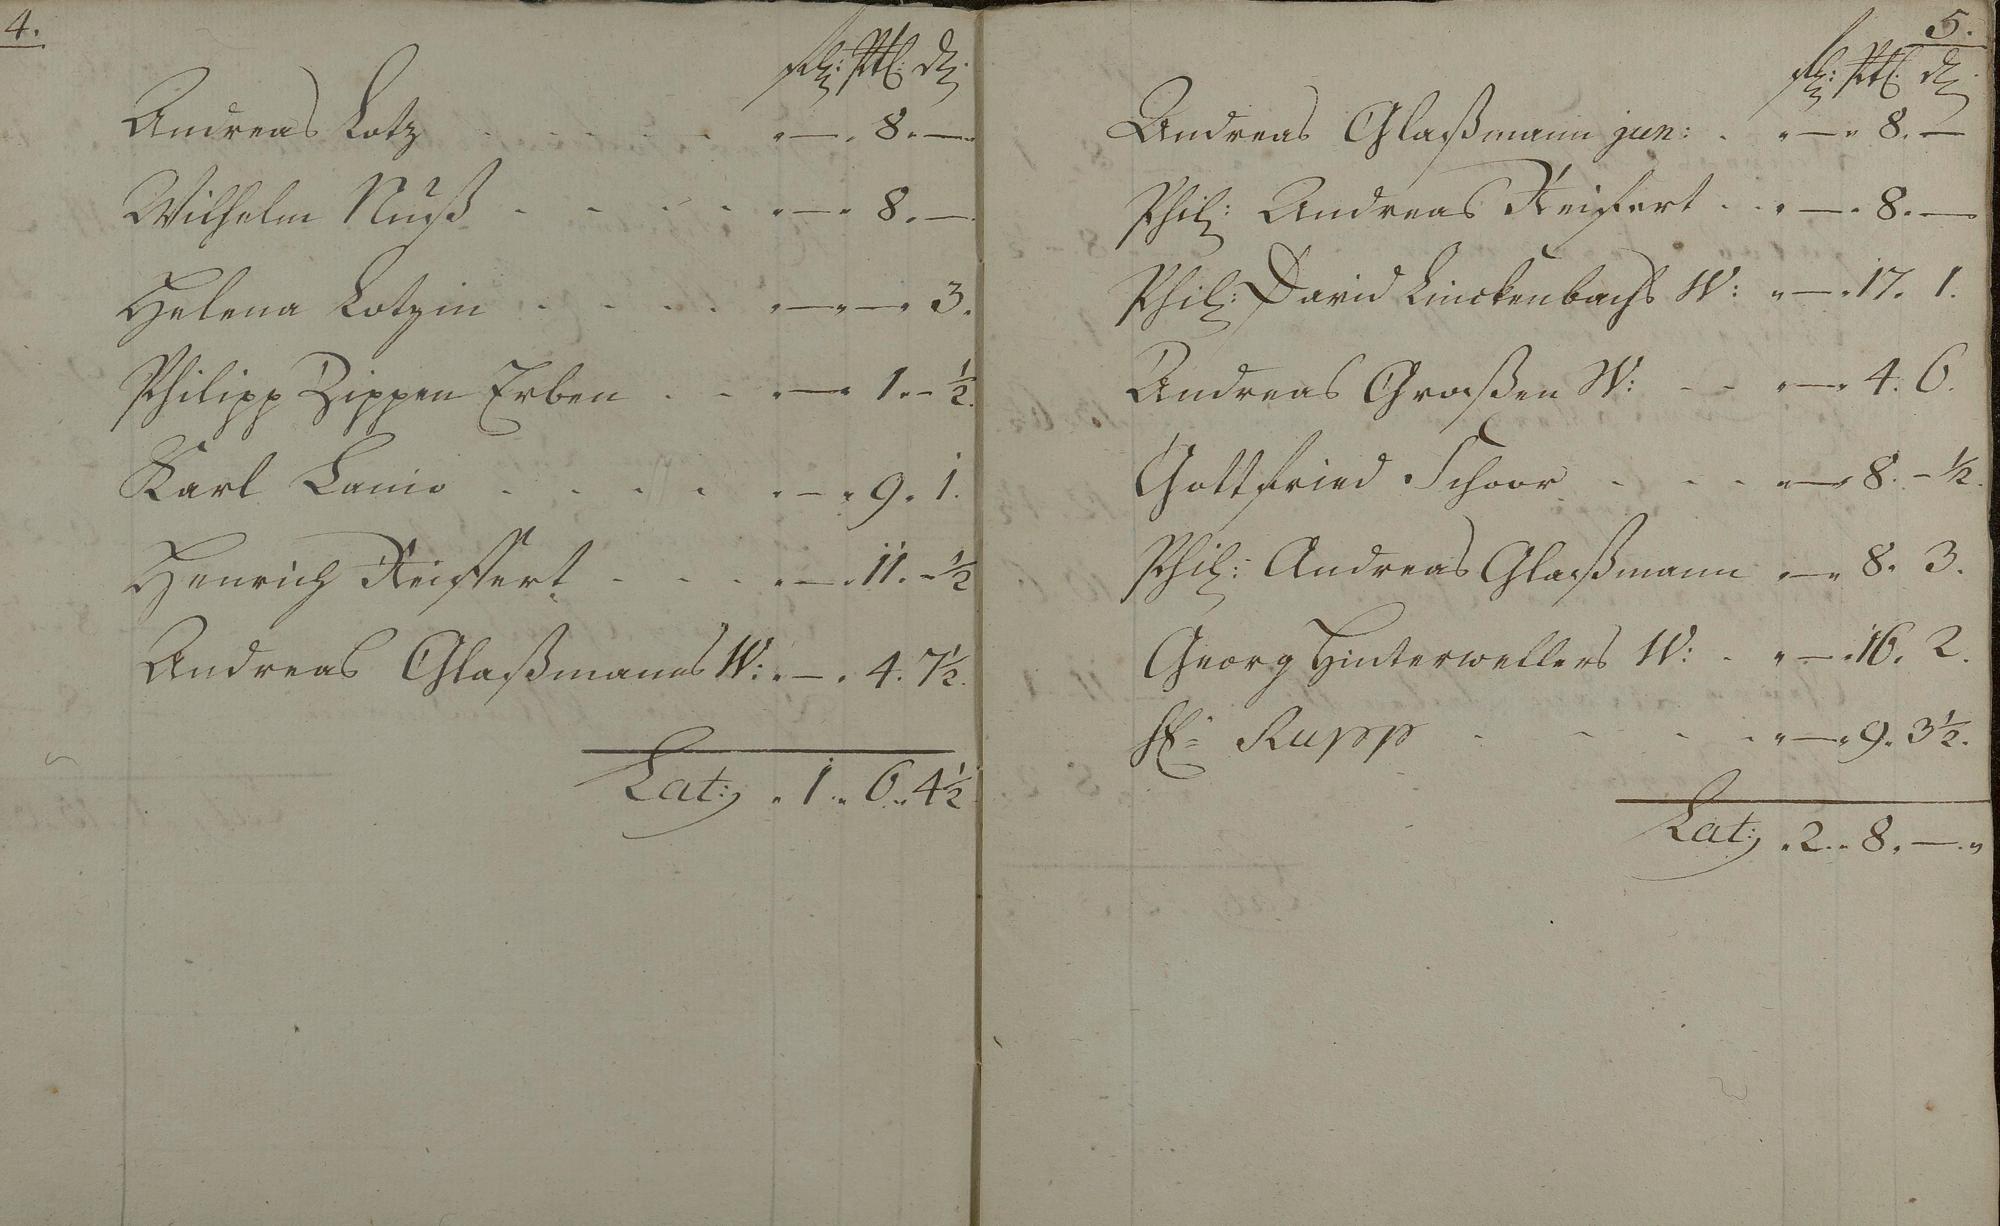 4.
fl: Btl: d.
Andreas Lotz - - - - - " — " 8. —
Wilhelm Nuß - - - - - " — " 8. —
Helena Lotzin - - - - " — " — " 3.
Philipp Zippen Erben - - " — " 1. - ½.
Karl Lanio - - - - " — " 9. 1.
Henrich Reiffert - - - " — " 11. - ½
Andreas Glaßmanns W: " — " 4. 7½.
Lat: " 1. " 6. " 4½
5.
fl: Btl: d.
Andreas Glaßmann jun: - " — " 8. —
Phil: Andreas Reifert - - " — " 8. —
Phil: David Linckenbachs W: " — " 17. 1.
Andreas Graßen W: - - " — " 4. 6.
Gottfried Schoor - - - " — " 8. - ½.
Phil: Andreas Glaßmann " — " 8. 3.
Georg Hinterwellers W: - " — " 16. 2.
H: Rupp - - - - " — " 9. 3½.
Lat: " 2. " 8. — "